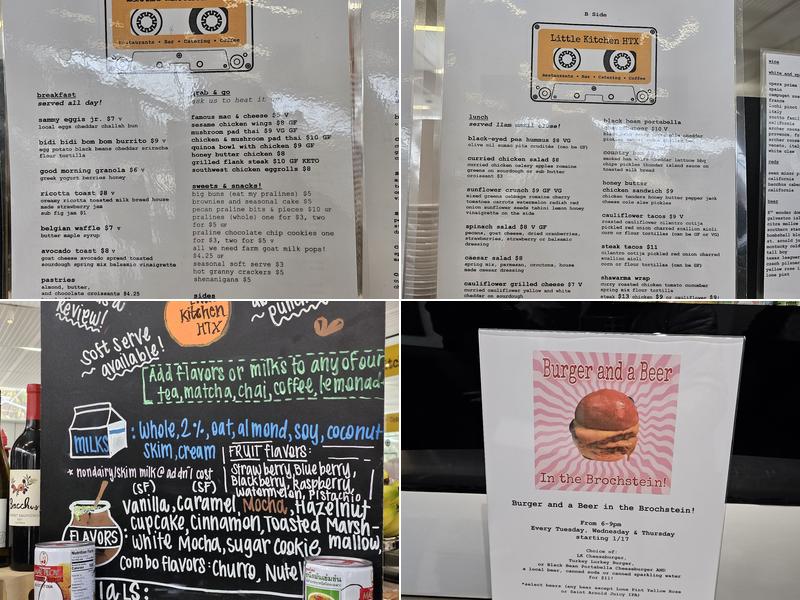 Restaurants • Bar • Catering • Coffee
breakfast
served all day!
sammy eggis jr. $7 v
local eggs cheddar challah bun
bidi bidi bom bom burrito $9 v
egg potato black beans cheddar sriracha
flour tortilla
good morning granola $6 v
greek yogurt berries honey
ricotta toast $8 v
creamy ricotta toasted milk bread house
made strawberry jam
sub fig jam $1
belgian waffle $7 v
butter maple syrup
avocado toast $8 v
goat cheese avocado spread toasted
sourdough spring mix balsamic vinaigrette
pastries
almond, butter,
and chocolate croissants $4.25
grab & go
ask us to heat it up
famous mac & cheese $5 V
sesame chicken wings $8 GF
mushroom pad thai $9 VG GF
chicken & mushroom pad thai $10 GF
quinoa bowl with chicken $9 GF
honey butter chicken $8
grilled flank steak $10 GF KETO
southwest chicken eggrolls $8
sweets & snacks!
big buns (eat my pralines) $5
brownies and seasonal cake $5
pecan praline bits & pieces $10
pralines (whole) one for $3, two
for $5
praline chocolate chip cookies one
for $3, two for $5 v
all we need farm goat milk pops!
$4.25
seasonal soft serve $3
hot granny crackers $5
shenanigans $5
sides
B Side
Little Kitchen HTX
Restaurants • Bar • Catering • Coffee
lunch
served 11am until close!
black-eyed pea hummus $8 VG
olive oil sumac pita crudités (can be GF)
curried chicken salad $8
curried chicken celery apples romaine
greens on sourdough or sub butter
croissant $3
sunflower crunch $9 GF VG
mixed greens cabbage romaine cherry
tomatoes carrots watermelon radish red
onion sunflower seeds tahini lemon honey
vinaigrette on the side
spinach salad $8 V GF
pecans, goat cheese, dried cranberries,
strawberries, strawberry or balsamic
dressing
caesar salad $8
spring mix, parmesan, croutons, house
made caesar dressing
cauliflower grilled cheese $7 V
curried cauliflower yellow and white
cheddar on sourdough
black bean portabella
$10 V
country
smoked ham white cheddar lettuce bbq
chips pickles thousand island sauce on
toasted milk bread
honey butter
chicken sandwich $9
chicken tenders honey butter pepper jack
cheese cole slaw pickles
cauliflower tacos $9 V
roasted cauliflower cilantro cotija
pickled red onion charred scallion aioli
corn or flour tortillas (can be GF or VG)
steak tacos $11
cilantro cotija pickled red onion charred
scallion aioli
corn or flour tortillas (can be GF)
shawarma wrap
curry roasted chicken tomato cucumber
spring mix flour tortilla
steak $13 chicken $9 or cauliflower $9
wine
reds
beer
Review!
Kitchen
HTX
Soft Serve
available!
Add flavors or milks to any of our
tea, matcha, chai, coffee, lemonad
MILKS
: Whole, 2%, oat, almond, soy, coconut
skim, cream
* nondairy/skim milk @ addn'l cost
FRUIT flavors:
strawberry, blueberry,
blackberry, Raspberry,
watermelon, pistachio
(SF) (SF)
vanilla, caramel, Mocha, Hazelnut
cupcake, Cinnamon, Toasted Marsh-
mallow,
FLAVORS
: White Mocha, sugar cookie
Combo flavors: Churro, Nute
Bacchus
Burger and a Beer
In the Brochstein!
Burger and a Beer in the Brochstein!
From 6-9pm
Every Tuesday, Wednesday & Thursday
starting 1/17
Choice of:
LK Cheeseburger,
Turkey Lurkey Burger,
or Black Bean Portabella Cheeseburger AND
a local beer, canned soda or canned sparkling water
for $11!
*select beers (any beer except Lone Pint Yellow Rose
or Saint Arnold Juicy IPA)